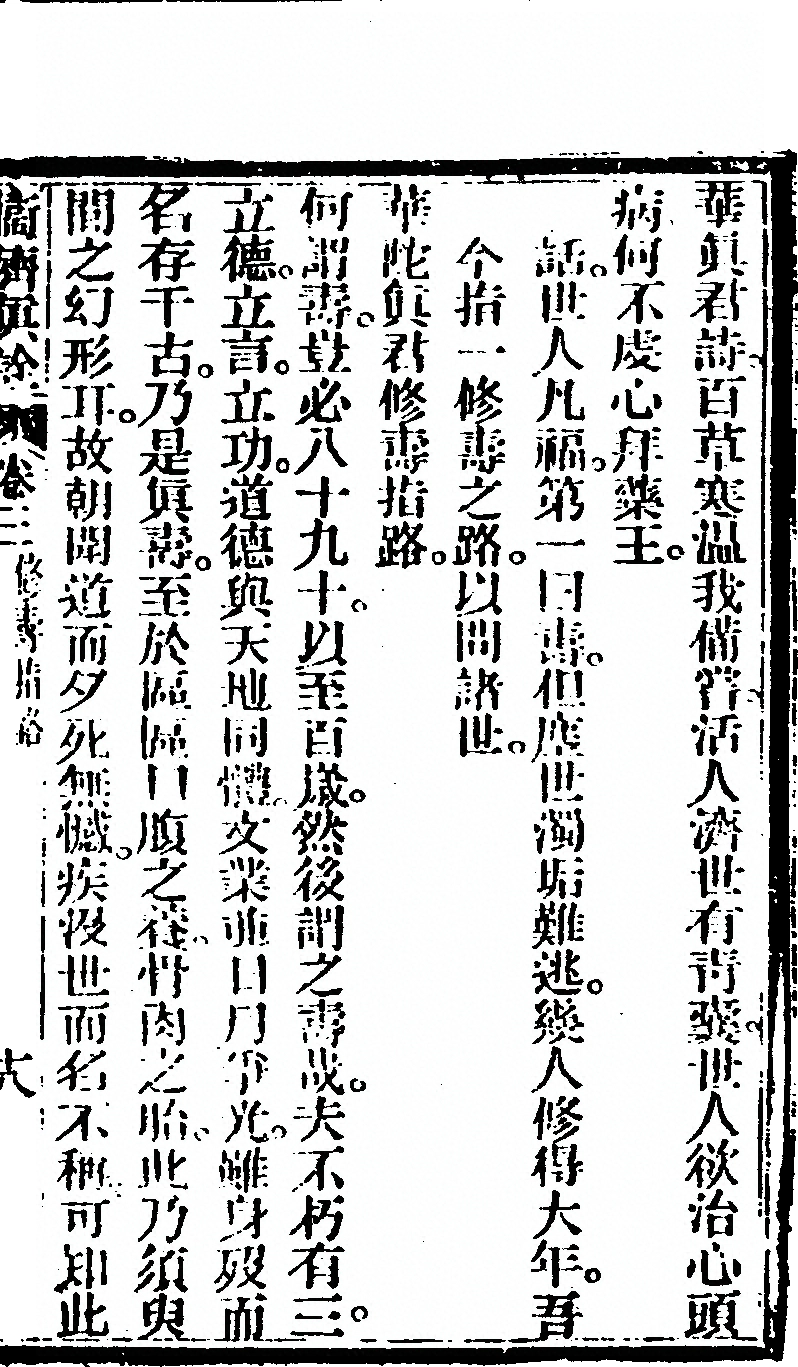 華眞君詩百草寒溫我備嘗活人濟世有靑囊世人欲治心頭
病何不虔心拜藥王。
話。世人凡福。第一曰壽。但塵世濁垢難逃。幾人修得大年。吾
今指一修壽之路。以問諸世。
華陀眞君修壽指路。
何謂壽。豈必八十九十。以至百歲。然後謂之壽哉。夫不朽有三。
立德。立言。立功。道德與天地同體。文業並日月爭光。雖身歿而
名存千古。乃是眞壽。至於區區口腹之養。骨肉之胎。此乃須臾
間之幻形耳。故朝聞道而夕死無憾。疾沒世而名不稱。可知此
濟眞詮 卷三 修壽指路 十六